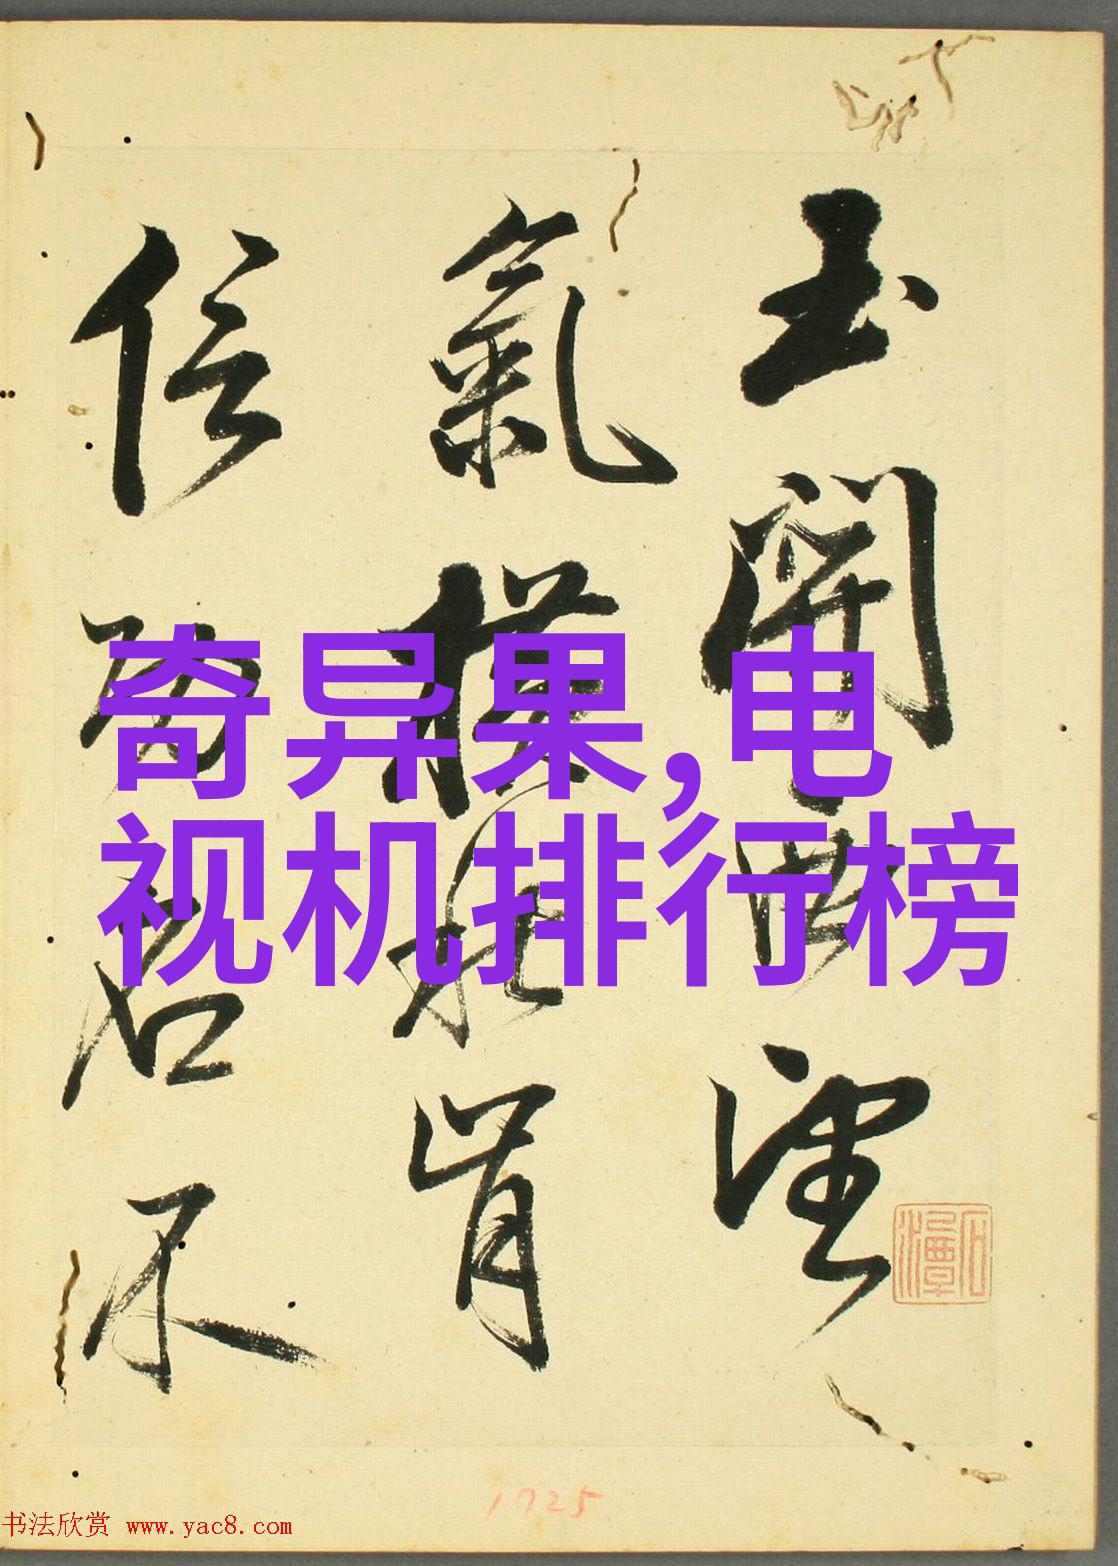 奇异果,电
视机排行榜
玉開望
氣橫秋肯
信不
石潭
1725
书法欣赏 www.yac8.com